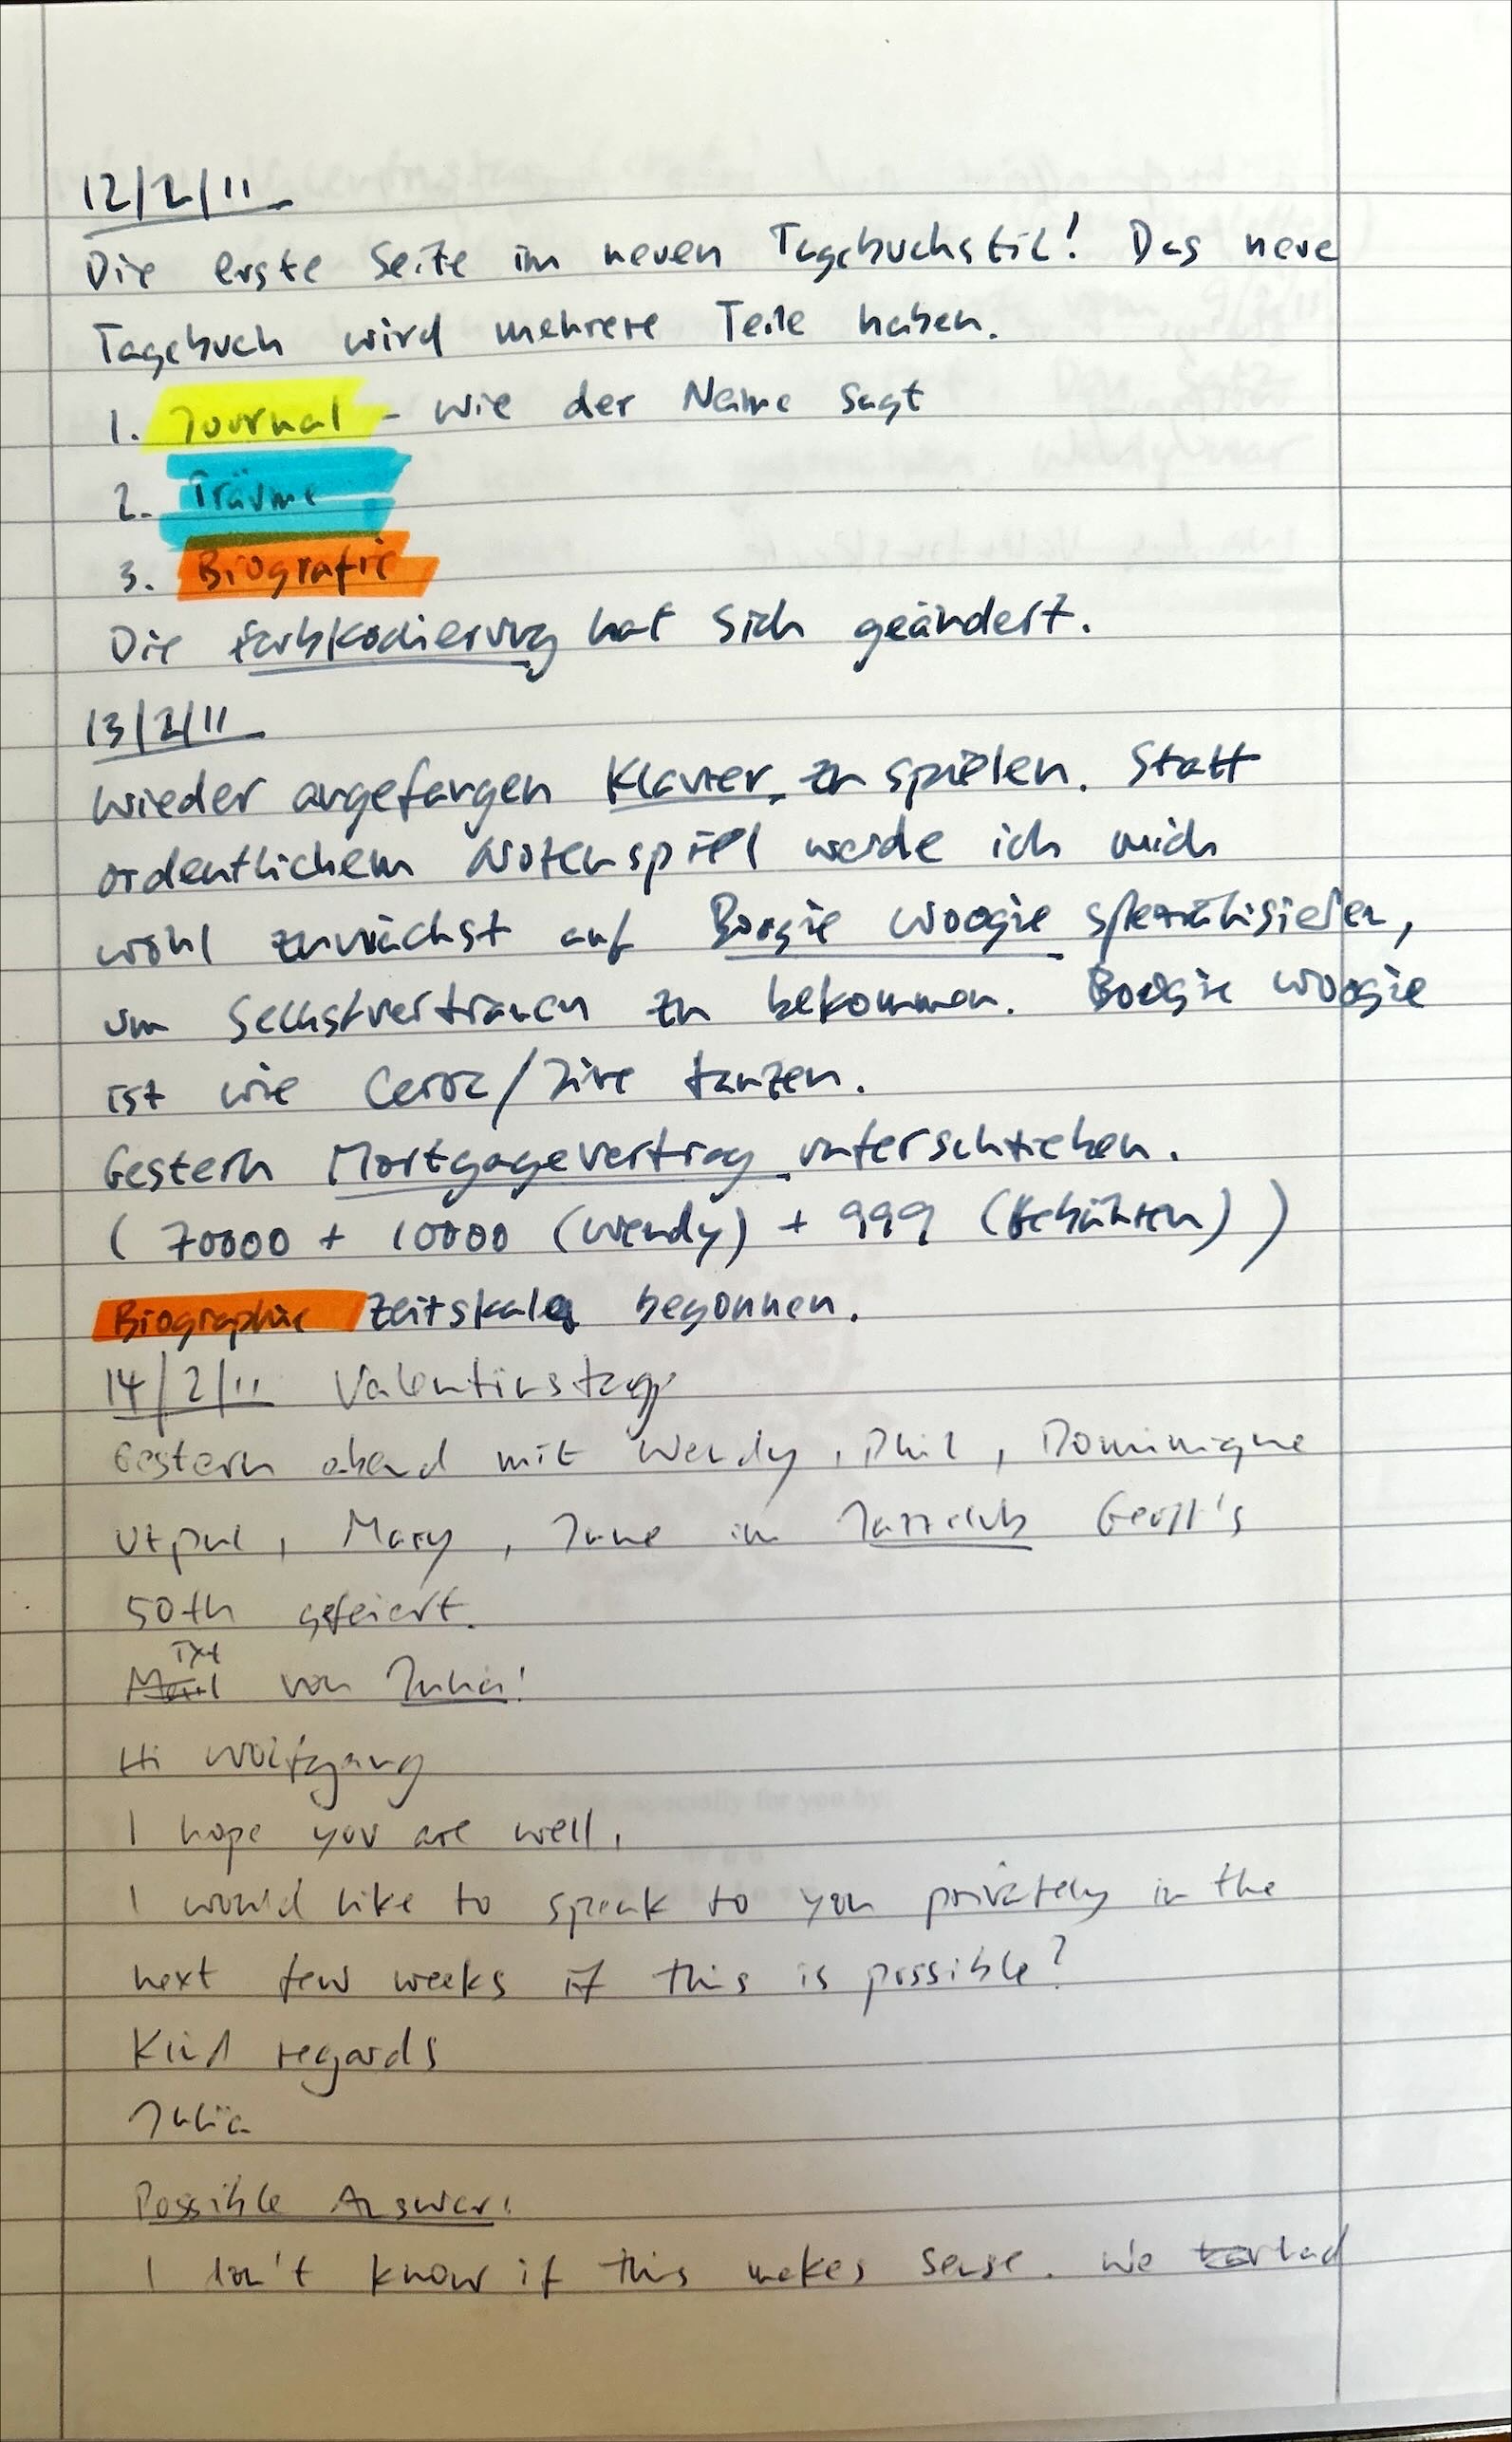 12/2/11
Die erste Seite im neuen Tagebuchstil! Das neue
Tagebuch wird mehrere Teile haben.
1. Journal - wie der Name sagt
2. Träume
3. Biografie
Die Farbkodierung hat sich geändert.
13/2/11
Wieder angefangen Klavier zu spielen. Statt
ordentlichem Notenspiel werde ich mich
wohl zunächst auf Boogie Woogie spezialisieren,
um Selbstvertrauen zu bekommen. Boogie Woogie
ist wie Ceroc/Jive tanzen.
Gestern Mortgagevertrag unterschrieben.
(70000 + 10000 (Wendy) + 999 (Gebühren))
Biographie Zeitskala begonnen.
14/2/11 Valentinstag
Gestern abend mit Wendy, Phil, Dominique
Utpal, Mary, Jane im Jazzclub Geoff's
50th gefeiert.
Txt
Mail von Julia!
Hi Wolfgang
I hope you are well.
I would like to speak to you privately in the
next few weeks if this is possible?
Kind regards
Julia
Possible Answer:
I don't know if this makes sense. We had